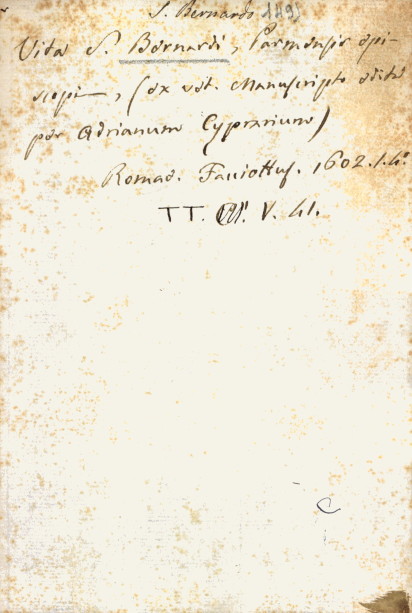 S. Bernardo 1491
Vita S. Bernardi, Parmensis epi-
scopi—, (ex vet. Manuscripto edita
per Adrianum Cyprarium)
Romae. Facciottus. 1602. 1. 4.°
TT. VII. V. 41.
C